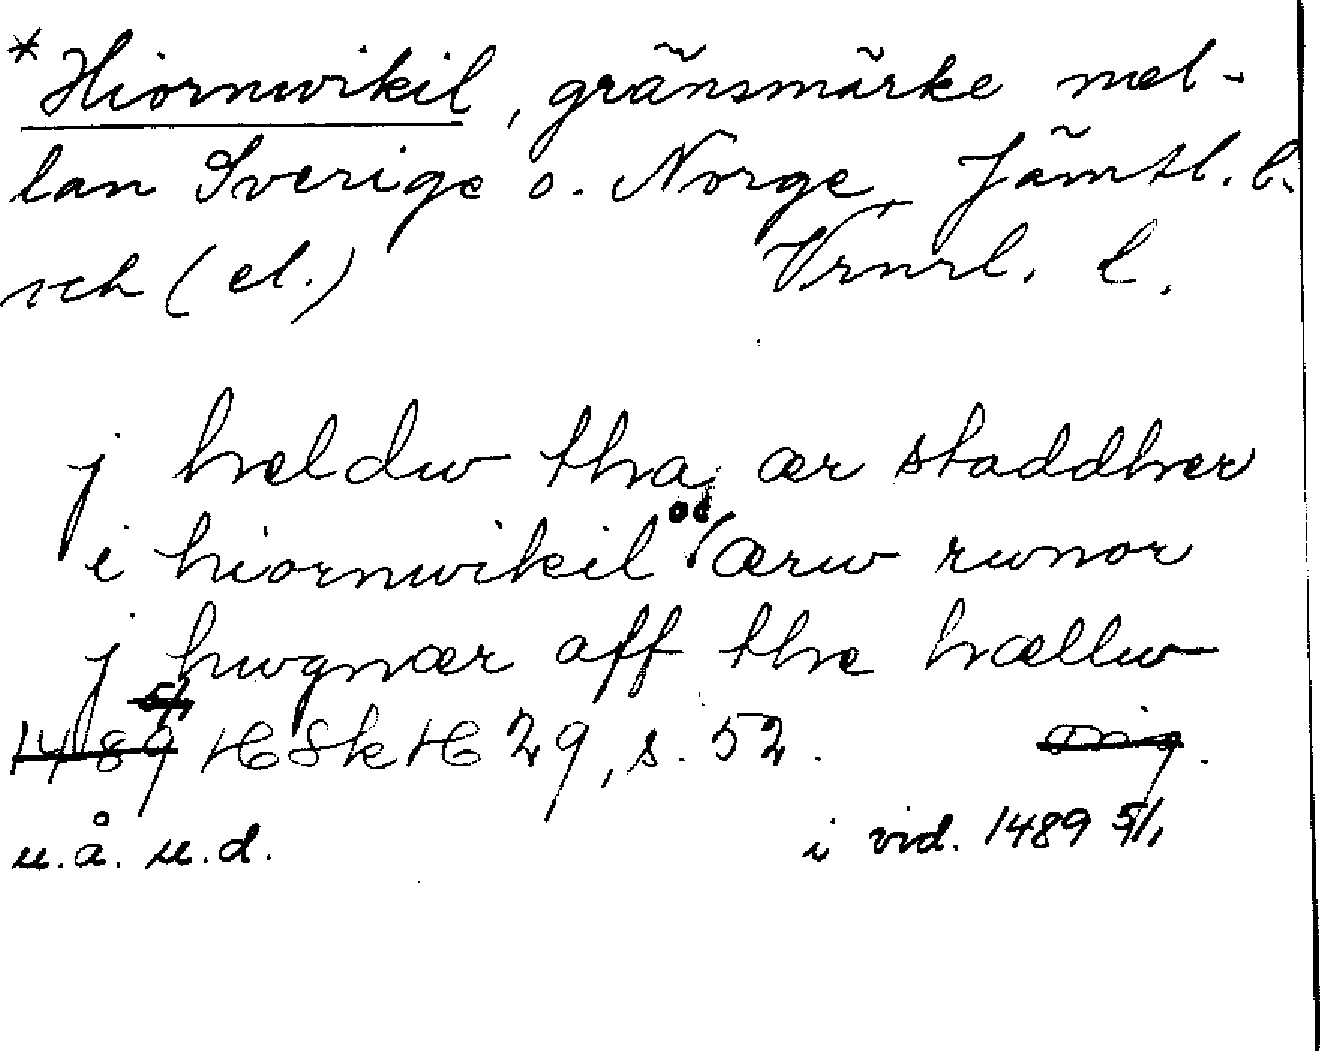 * Hiornwikil, gränsmärke mel-
lan Sverige o. Norge, Jämtl. l.
och (el.) Vrml. l.
j heldw tha, ær staddher
i hiornwikil oc ærw rwnor
j hwgnær aff the hællw
1489 5/1 HSkH 29, s. 52. orig.
u.å. u.d. i vid. 1489 5/1